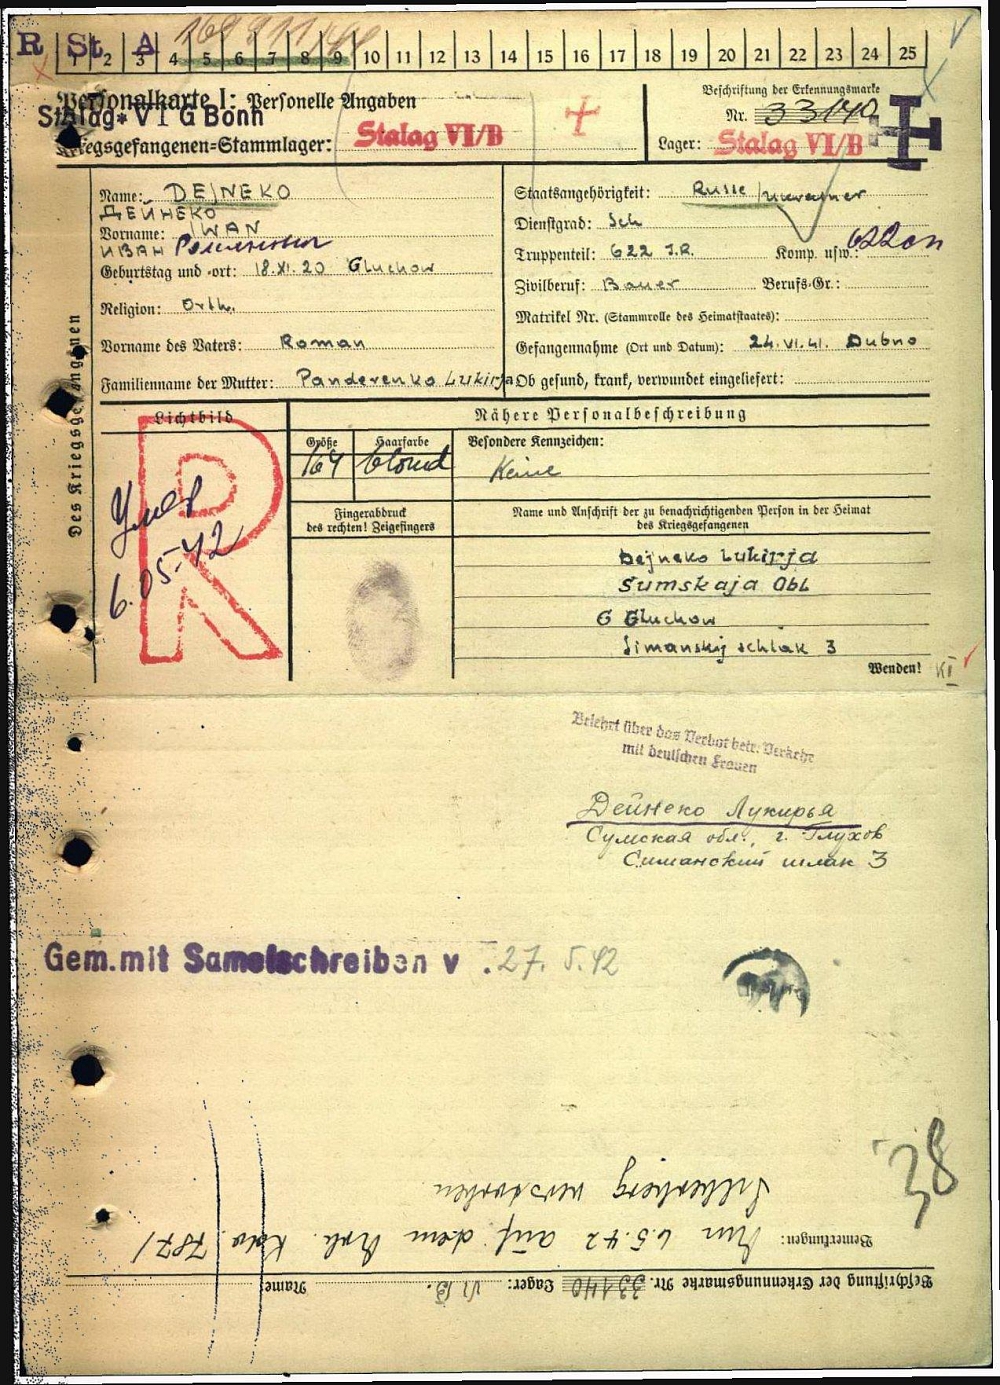 R St. A
1 2 3 4 5 6 7 8 9 10 11 12 13 14 15 16 17 18 19 20 21 22 23 24 25
Personalkarte I: Personelle Angaben
Beschriftung der Erkennungsmarke
Stalag VI G Bonn
Nr. 33140
Kriegsgefangenen=Stammlager: Stalag VI/B
Lager: Stalag VI/B
Des Kriegsgefangenen
Name: DEJNEKO
ДЕЙНЕКО
Vorname: IWAN
ИВАН Романович
Geburtstag und =ort: 18.XI.20 Gluchow
Religion: Orth.
Vorname des Vaters: Roman
Familienname der Mutter: Panderenko Lukirja
Staatsangehörigkeit: Russe /Ukrainer
Dienstgrad: Sch
Truppenteil: 622 I.R. Komp. usw.: 622сп
Zivilberuf: Bauer Berufs=Gr.:
Matrikel Nr. (Stammrolle des Heimatstaates):
Gefangennahme (Ort und Datum): 24.VI.41. Dubno
Ob gesund, krank, verwundet eingeliefert:
Lichtbild
R
Умер
6.05-42
Nähere Personalbeschreibung
Größe Haarfarbe Besondere Kennzeichen:
164 blond Keine
Fingerabdruck
des rechten! Zeigefingers
Name und Anschrift der zu benachrichtigenden Person in der Heimat
des Kriegsgefangenen
Dejneko Lukirja
Sumskaja Obl
G Gluchow
Simanskij schlak 3
Wenden!
Belehrt über das Verbot betr. Verkehr
mit deutschen Frauen
Дейнеко Лукирья
Сумская обл., г. Глухов
Симанский шлак 3
Gem. mit Samelschreiben v. 27.5.42
38
Beschriftung der Erkennungsmarke Nr. 33140 Lager: VI B. Name:
Bemerkungen: Am 6.5.42 auf dem Arb. Kdo. 787/
Silberberg verstorben